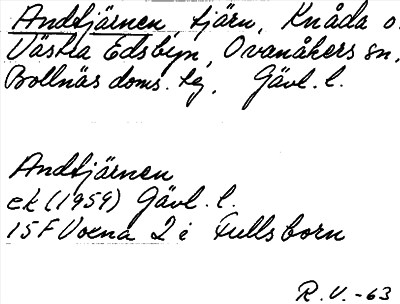 Andtjärnen, tjärn, Knåda o.
Västra Edsbyn, Ovanåkers sn,
Bollnäs doms. tg, Gävl. l.
Andtjärnen
ek (1959) Gävl. l.
15 F Voxna 2 i Fullsborn
R. V. -63